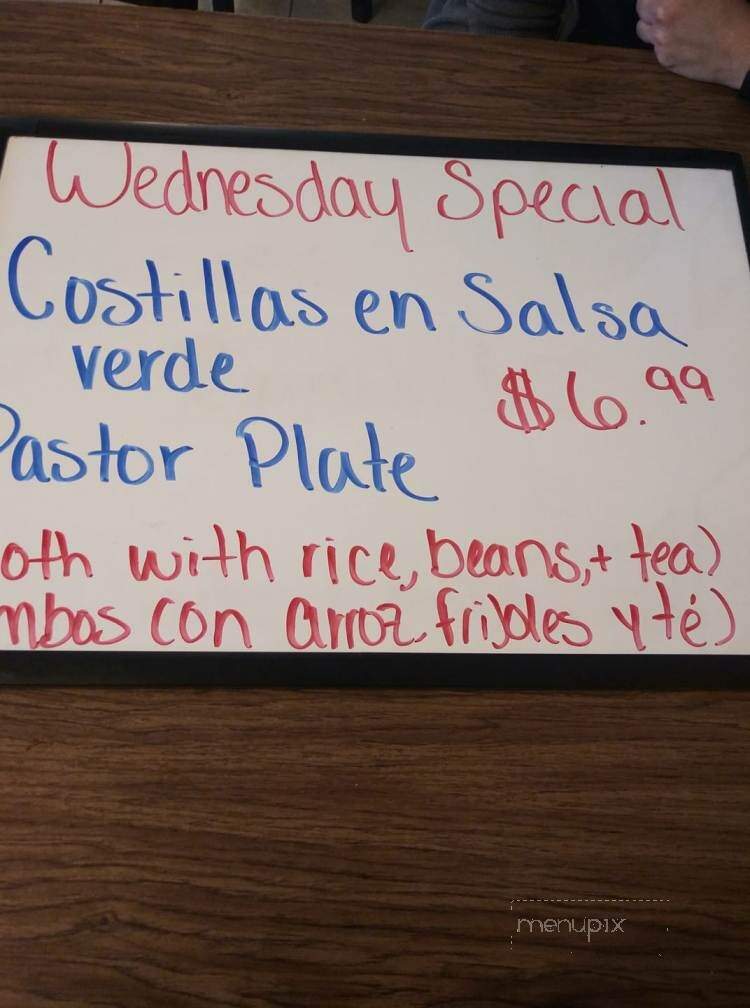 Wednesday Special
Costillas en Salsa
verde
$6.99
Pastor Plate
oth with rice, beans,+ tea)
mbos con arroz, frijoles y té)
menupix